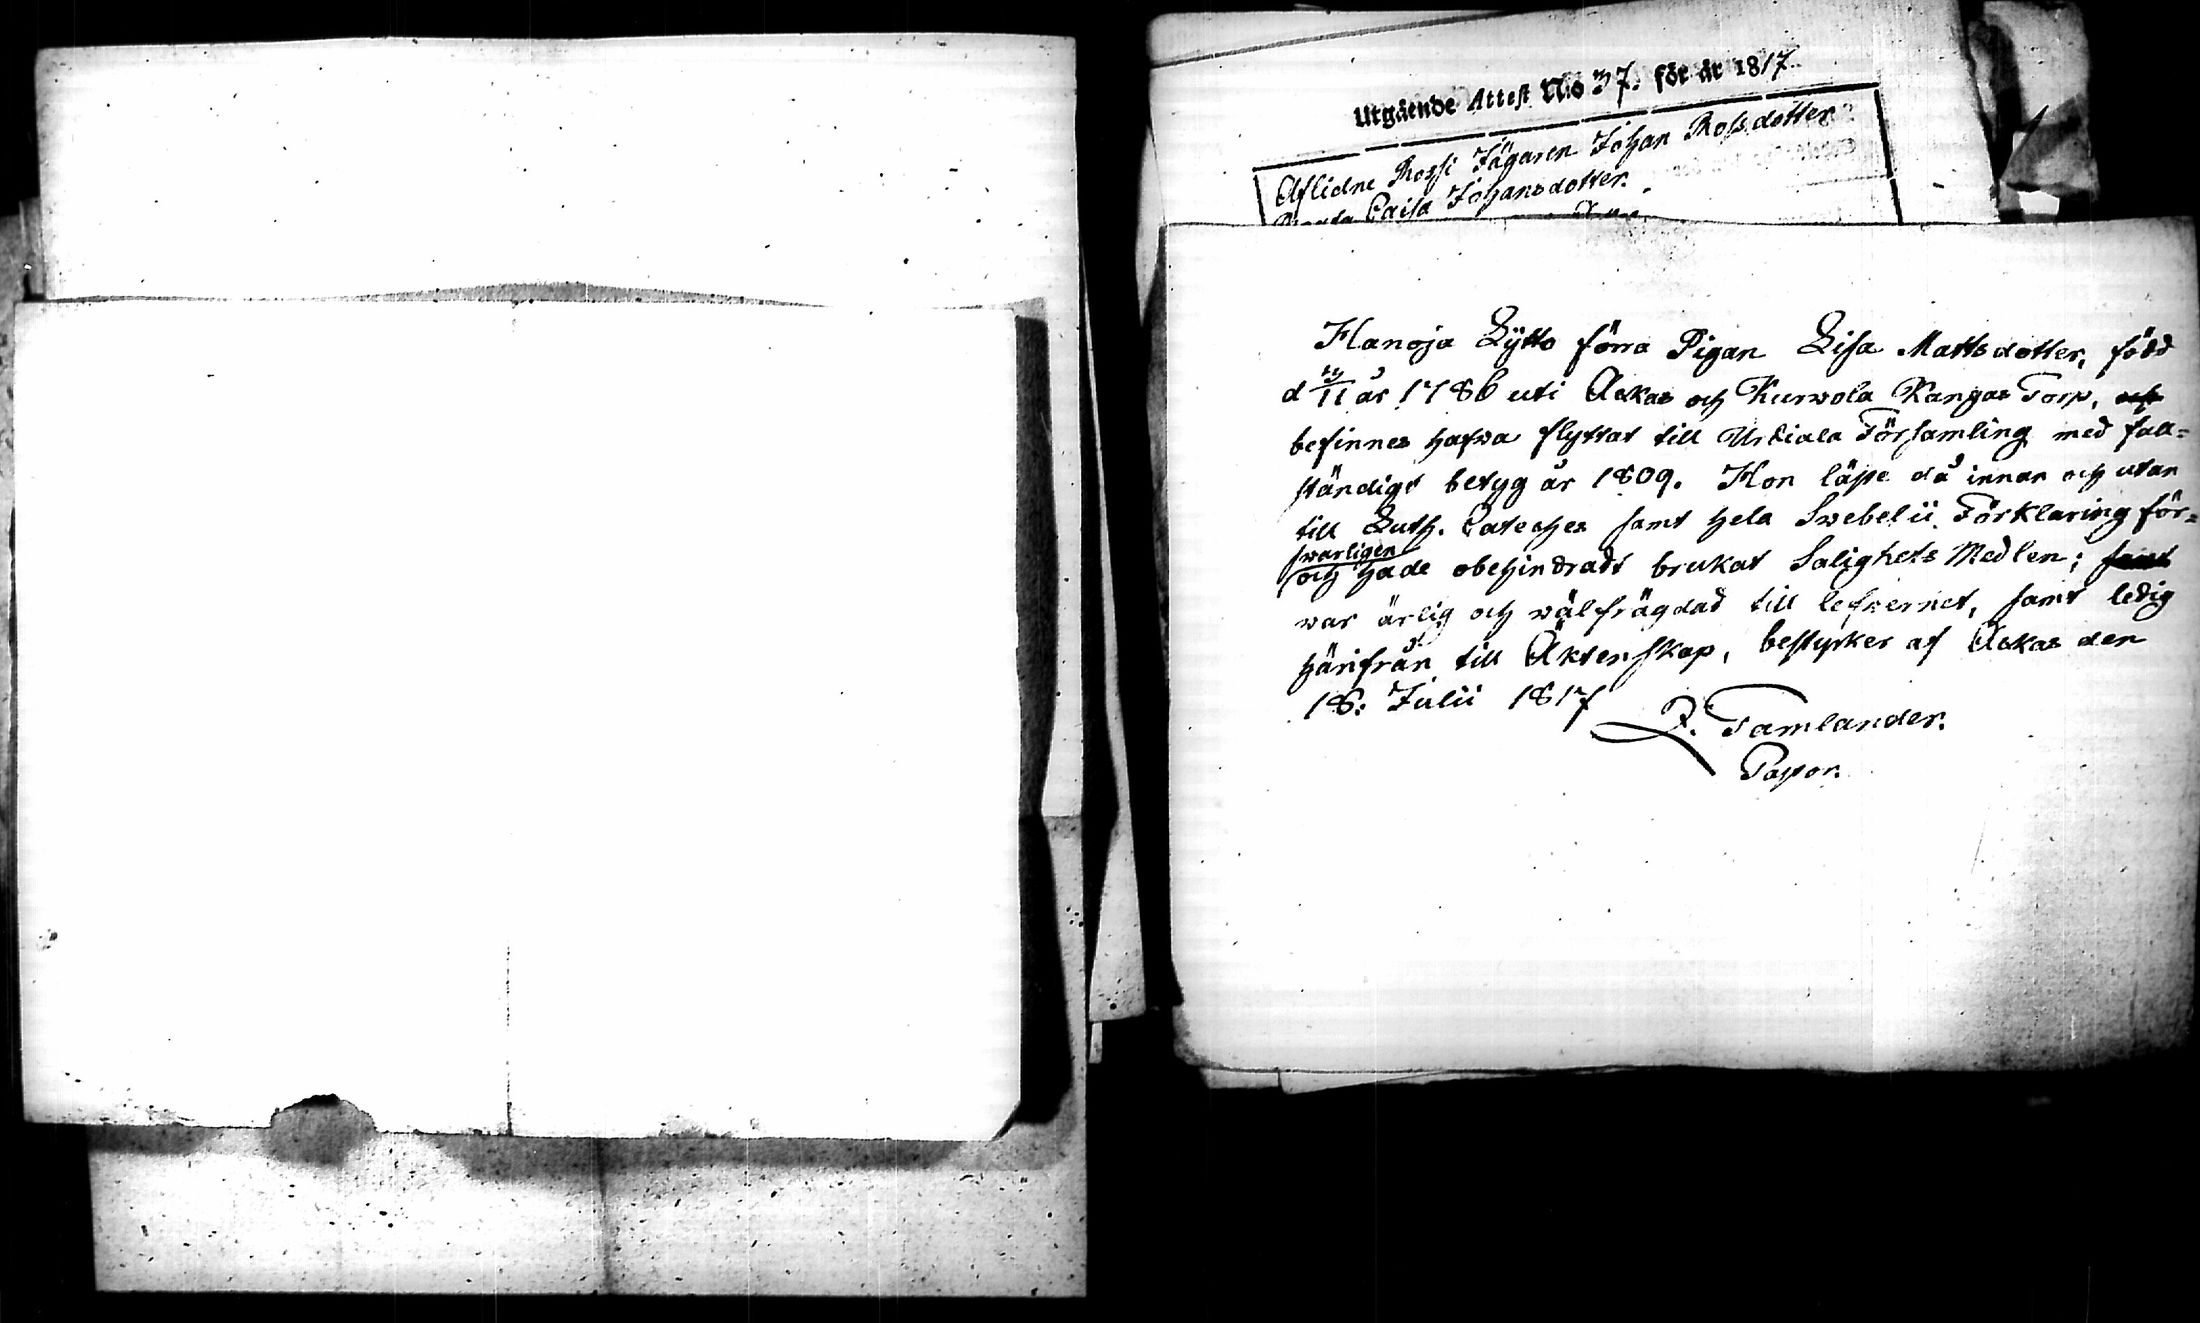 Utgående Attest N:o 37. för år 1817.
Aflidne Rossi Jägaren Johan Rossdotter
Caisa Johansdotter.
Hanoja Lytto förra Pigan Lisa Mattsdotter, född
d 11 år 1786 uti Ackas och Kurwola Kangas Torp, och
befinnes hafwa flyttat till Urdiala Församling med full=
ständigt betyg år 1809. Hon läste då innan och utan
till Luth. Cateches samt hela Swebelii Förklaring för=
swarligen
och hade obehindradt brukat Salighets Medlen; samt
war ärlig och wälfrägdad till lefwernet, samt ledig
härifrån till Äktenskap, bestyrker af Ackas den
18: Julii 1817
Z. Tamlander.
Pastor.